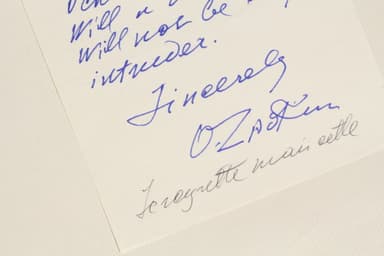 Will
will not be
intruder.
Sincerely
O. Zadkine
Je regrette mais cette